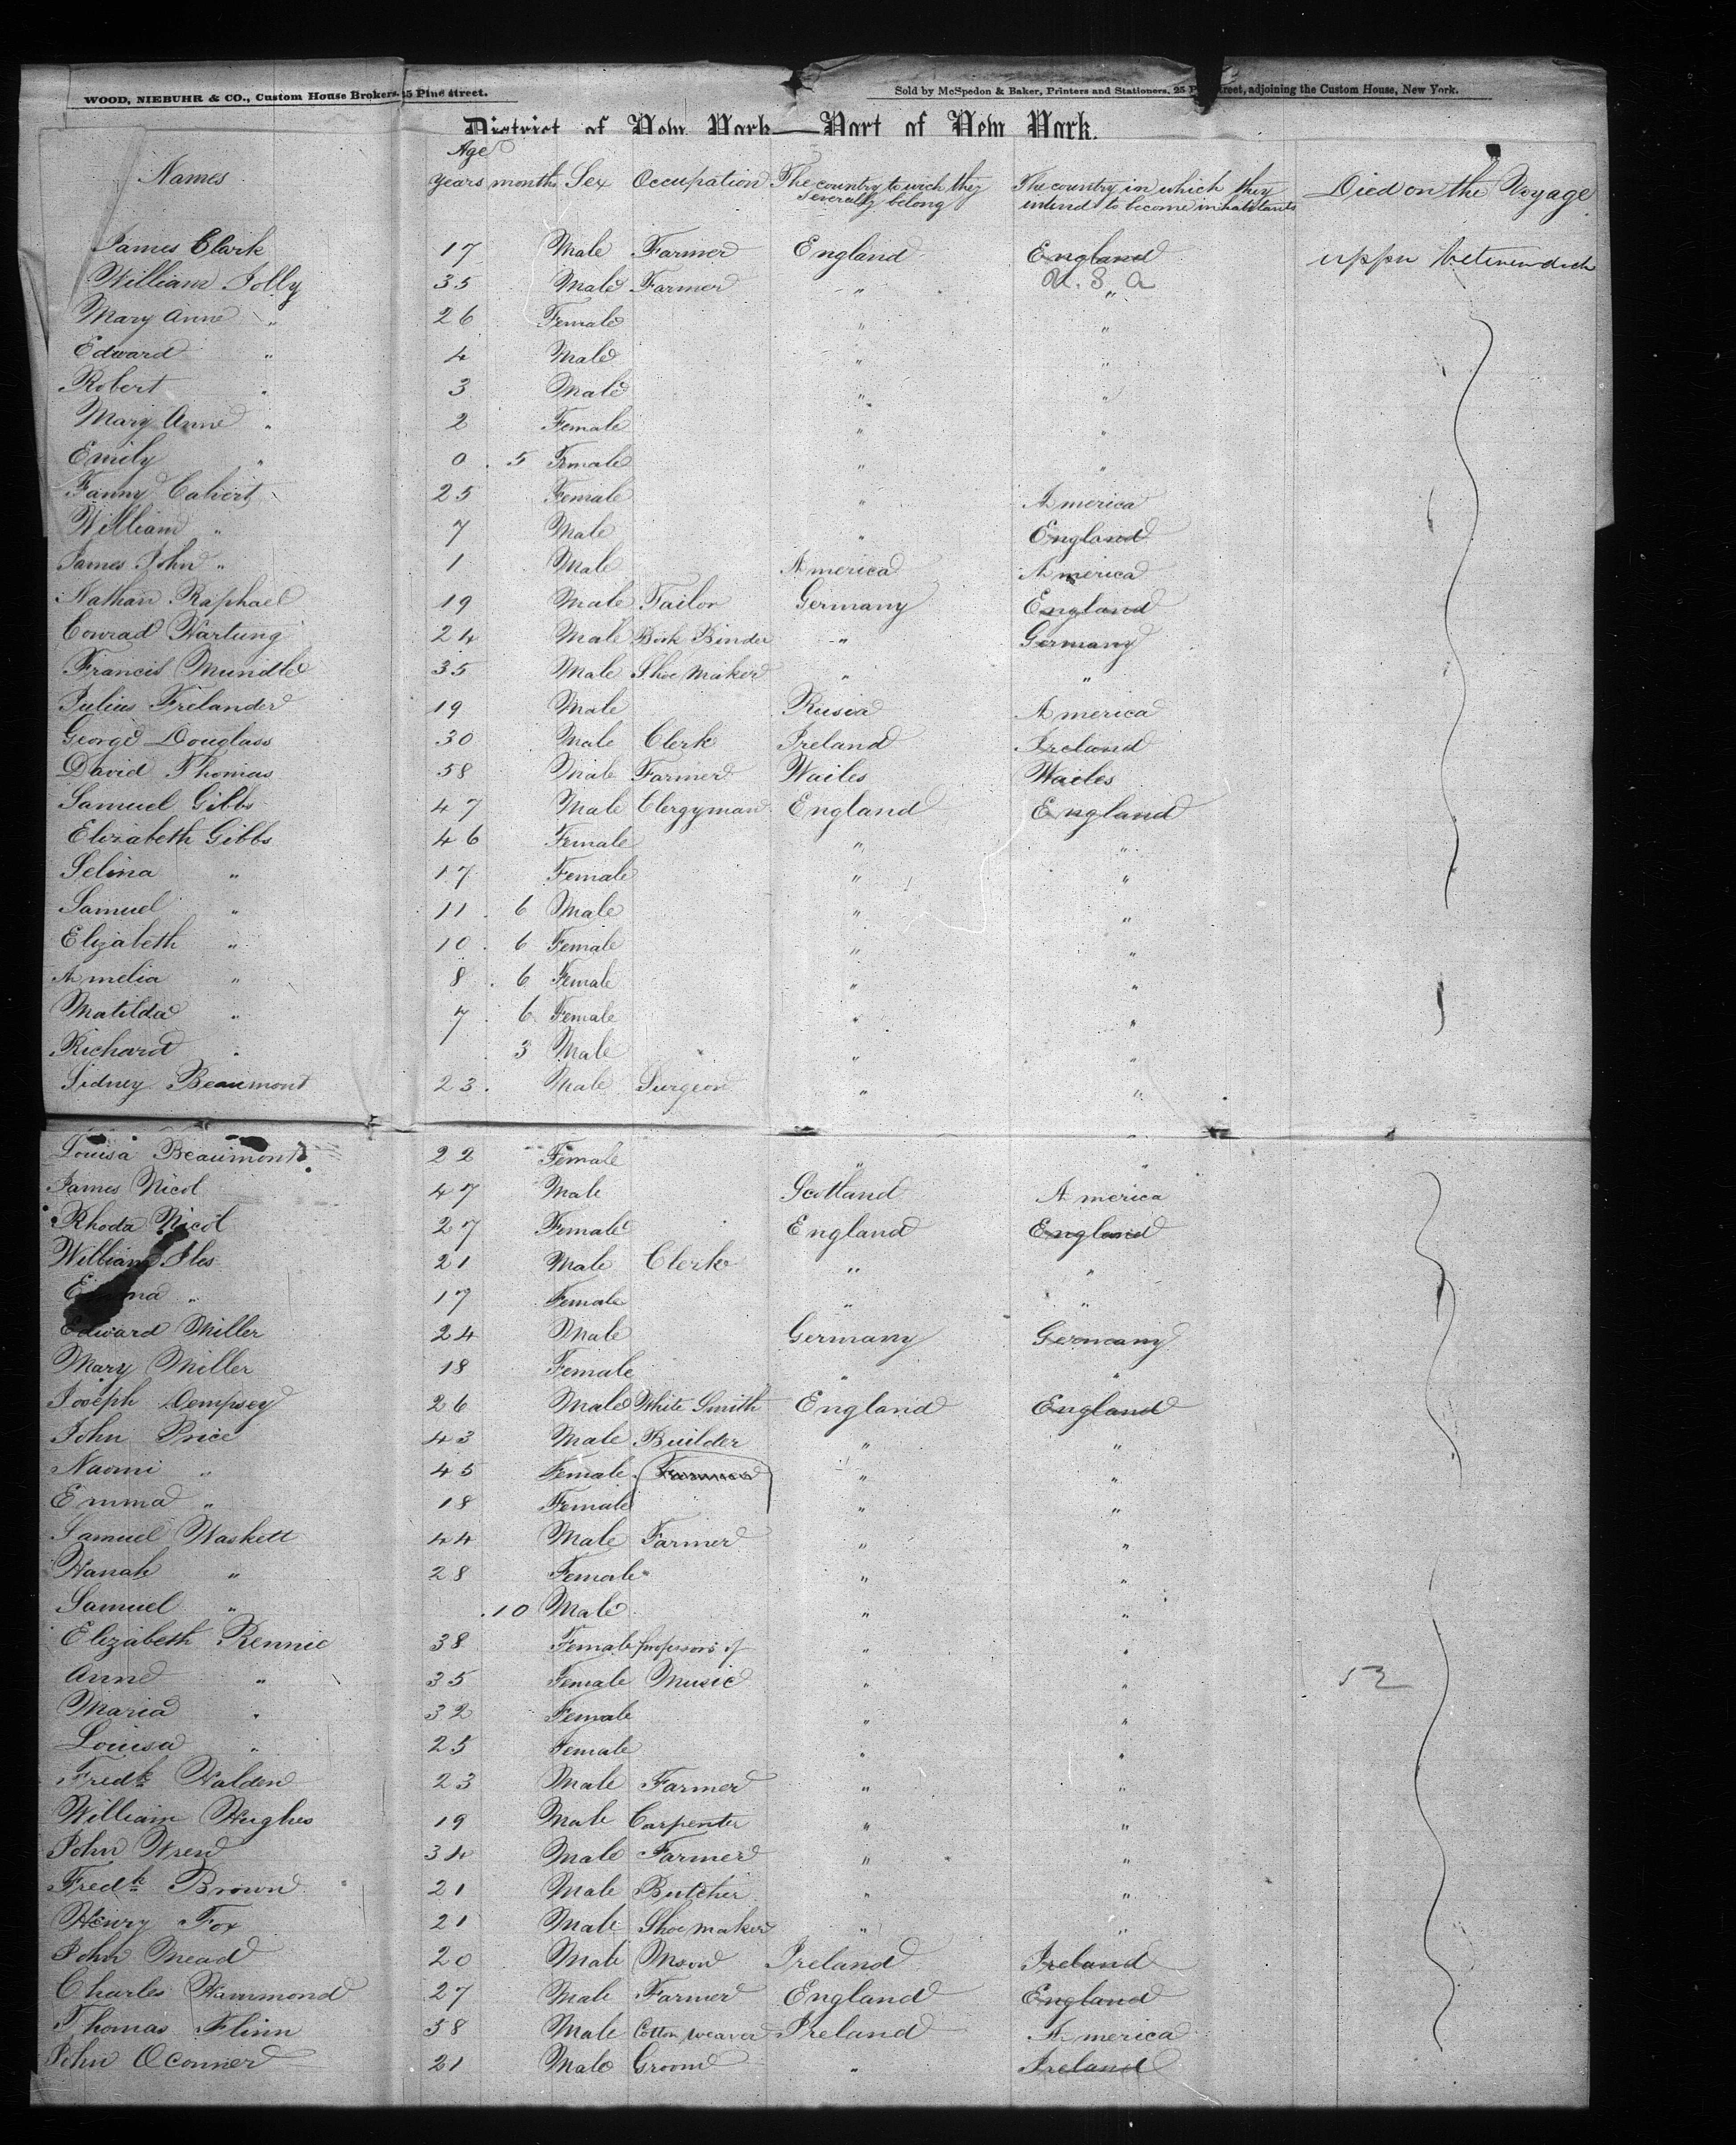 WOOD, NIEBUHR & CO., Custom House Brokers. 25 Pine street. Sold by McSpedon & Baker, Printers and Stationers, 25 Pine street, adjoining the Custom House, New York.
District of New York—Port of New York.
Age
Names years months Sex Occupation The country to wich they severally belong The country in which they intend to become inhabitants Died on the Voyage
James Clark 17 Male Farmer England England
U. S. a
William Jolly 35 Male Farmer " "
Mary Anne " 26 Female " "
Edward " 4 Male " "
Robert " 3 Male " "
Mary Anne " 2 Female " "
Emily " 0 . 5 Female " "
Fanny Calvert 25 Female " America
William " 7 Male " England
James John " 1 Male America America
Nathan Raphael 19 Male Tailor Germany England
Conrad Hartung 24 Male Book Binder " Germany
Francis Mundle 35 Male Shoe Maker " "
Julius Frelander 19 Male Rusia America
George Douglass 30 Male Clerk Ireland Ireland
David Thomas 58 Male Farmer Wailes Wailes
Samuel Gibbs 47 Male Clergyman England England
Elizabeth Gibbs 46 Female " "
Selina " 17 Female " "
Samuel " 11 . 6 Male " "
Elizabeth " 10 . 6 Female " "
Amelia " 8 . 6 Female " "
Matilda " 7 . 6 Female " "
Richard " . 3 Male " "
Sidney Beaumont 23 . Male Surgeon " "
Louisa Beaumont 22 Female " "
James Nicol 47 Male Scotland America
Rhoda Nicol 27 Female England England
William Iles 21 Male Clerk " "
Emma " 17 Female " "
Edward Miller 24 Male Germany Germany
Mary Miller 18 Female " "
Joseph Dempsey 26 Male White Smith England England
John Price 43 Male Builder " "
Naomi " 45 Female " "
Emma " 18 Female " "
Samuel Waskett 44 Male Farmer " "
Hanah " 28 Female " "
Samuel " . 10 Male " "
Elizabeth Rennie 38 Female professors of " "
Anne " 35 Female Music " " 52
Maria " 32 Female " "
Louisa " 25 Female " "
Fredk Walden 23 Male Farmer " "
William Hughes 19 Male Carpenter " "
John Wren 34 Male Farmer " "
Fredk Brown 21 Male Butcher " "
Henry Fox 21 Male Shoe maker " "
John Mead 20 Male Mson Ireland Ireland
Charles Hammond 27 Male Farmer England England
Thomas Flinn 58 Male Cotton weaver Ireland America
John Oconner 21 Male Groom " Ireland